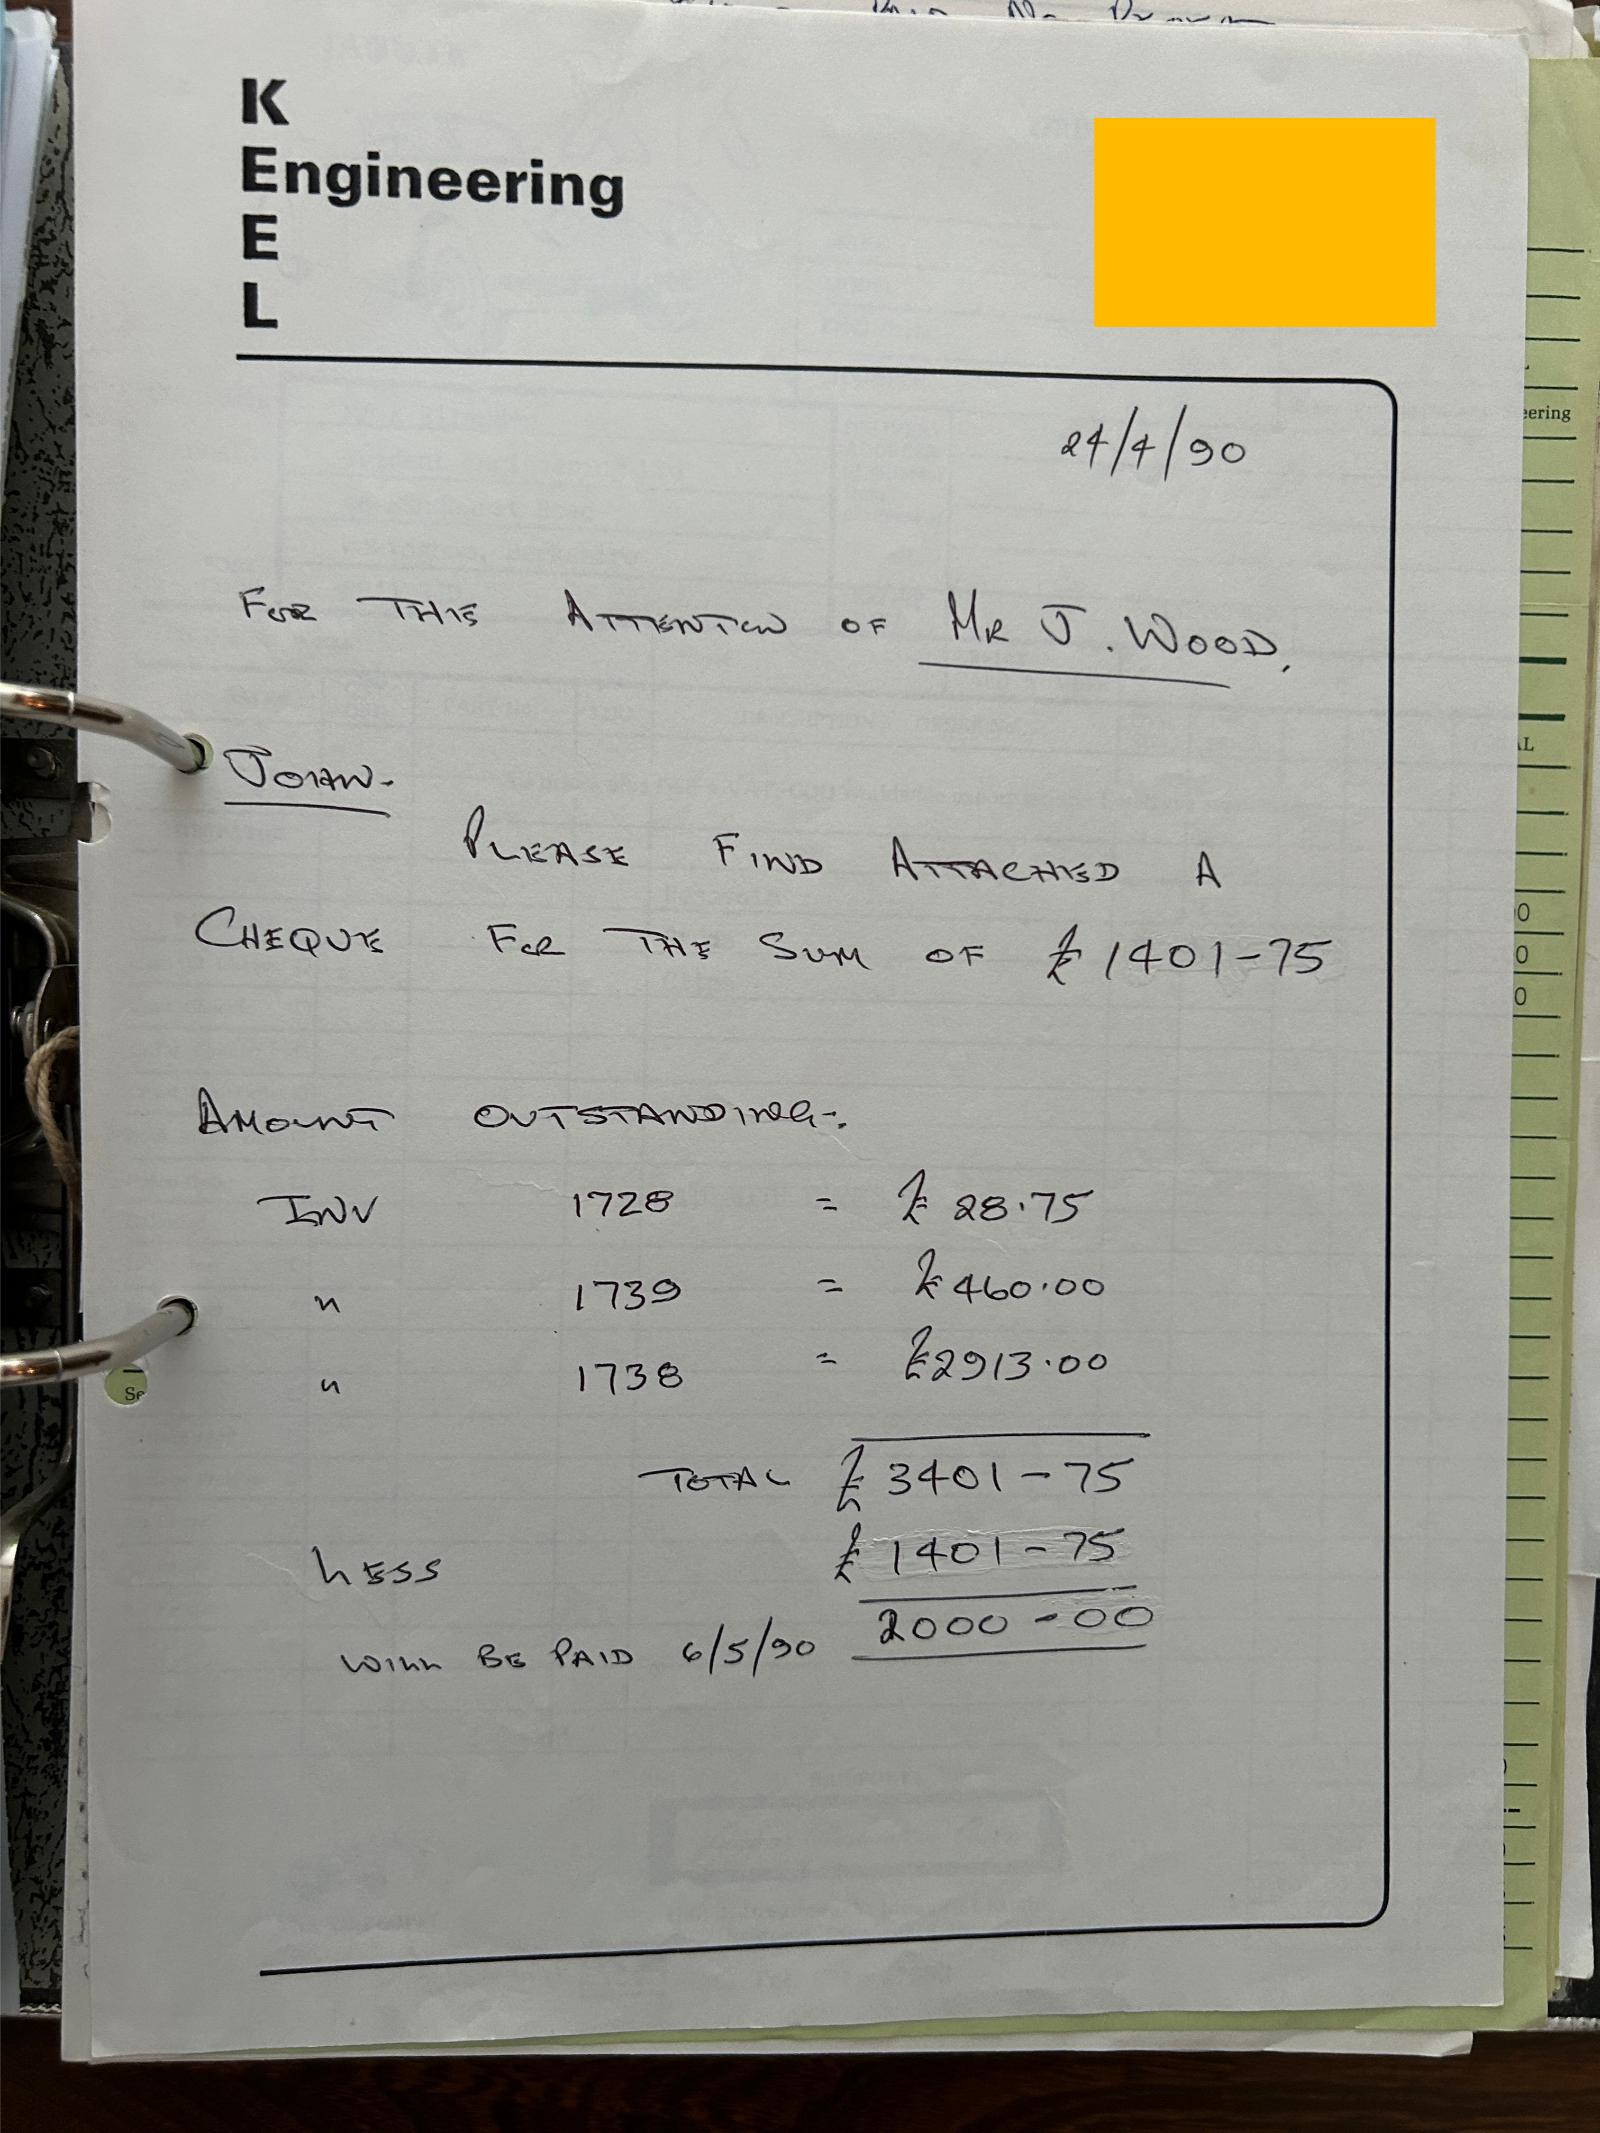 K
Engineering
E
L
24/4/90
FOR THE ATTENTION OF MR J. WOOD.
JOHN-
PLEASE FIND ATTACHED A
CHEQUE FOR THE SUM OF £1401-75
AMOUNT OUTSTANDING:-
INV 1728 = £ 28.75
" 1739 = £460.00
" 1738 = £2913.00
TOTAL £ 3401-75
LESS £ 1401-75
WILL BE PAID 6/5/90 2000-00
eering
AL